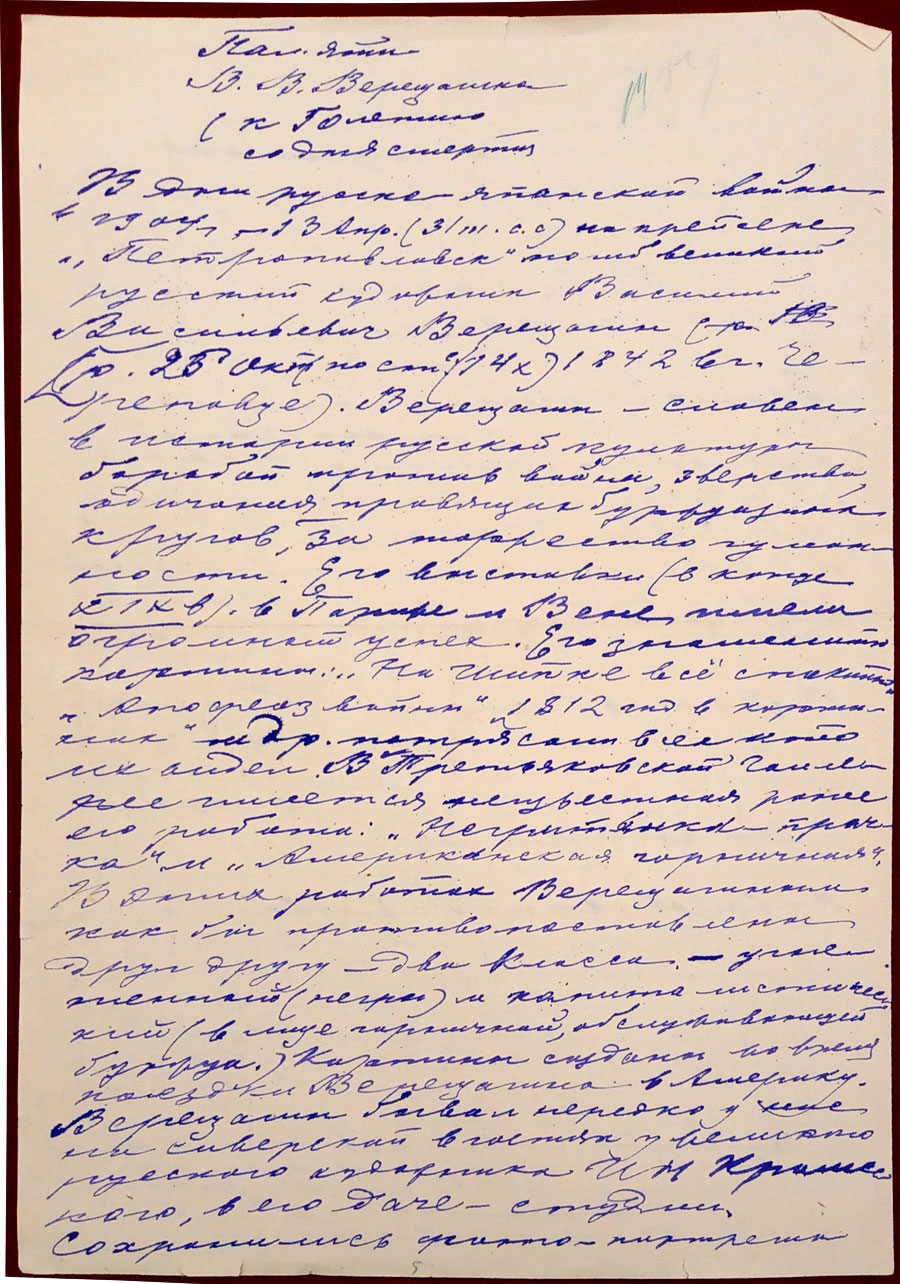 Памяти
В. В. Верещагина
(к 50летию
со дня смерти
В дни русско-японской войны
в 1904г. – 13 Апр. (31 м. с.с) на крейсере
„Петропавловск“ погиб великий
русский художник Василий
Васильевич Верещагин
(р. 25 Окт (по ст. 14 х) 1842 в г. Че-
реповце). Верещагин – словен
в истории русской культуры
борьбой против войны, зверства,
одичания правящих буржуазных
кругов, за торжество гуман-
ности. Его выставки (в конце
XIX в). в Париже и Вене имели
огромный успех. Его знаменитые
картины: „На Шипке всё спокойно“
„Апофеоз войны“, „1812 год в карти-
нах“ и др. потрясали всех кто
их видел. В Третьяковской Гале-
рее имеется неизвестная ранее
его работа: „Негритянка – прач-
ка“ и „Американская горничная“.
В этих работах Верещагиным
как бы противопоставлены
друг другу – два класса – угне-
тенный (негры) и капиталистичес-
кий (в лице горничной, обслуживающей
буржуа.) Картины созданы во время
поездки Верещагина в Америку.
Верещагин бывал нередко у нас
на Сиверской в гостях у великого
русского художника И Н Крамс-
кого, в его даче – студии.
Сохранились фото-портреты